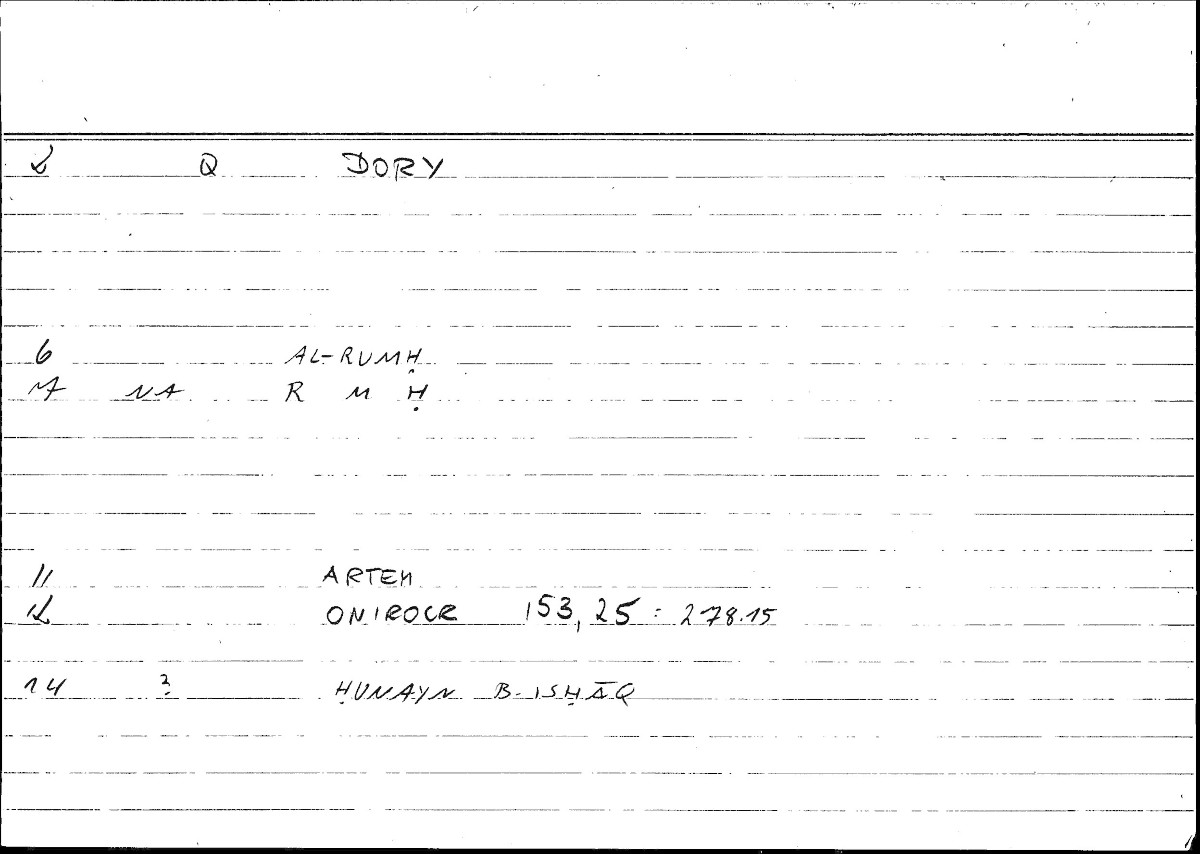 2 Q DORY
6 AL-RUMḤ
7 NA R M Ḥ
11 ARTEM
12 ONIROCR 153,25 : 278.15
14 2 ḤUNAYN B. ISḤĀQ